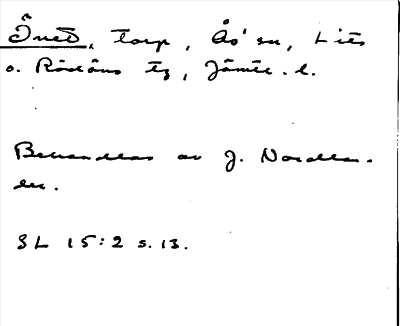 Öned, torp, Ås' sn, Lits
o. Rödöns tg, Jämtl. l.
Behandlas av J. Nordlan-
der.
SL 15:2 s. 13.